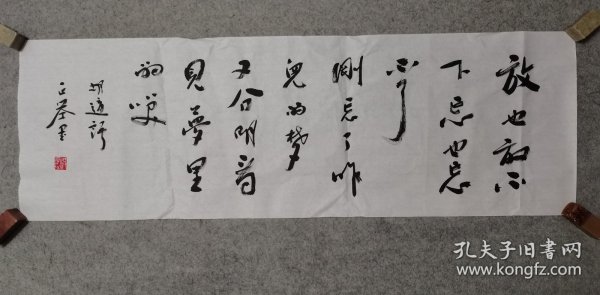 放也放不
下忘也忘
不了
剛忘了昨
兒的梦
又分明看
見夢里
的咲
胡適詩
孔夫子旧书网
www.kongfz.com